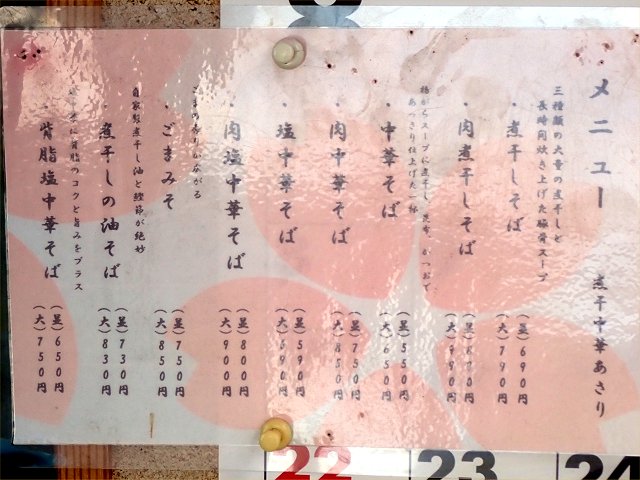 メニュー 煮干中華あさり
三種類の大量の煮干しと
長時間炊き上げた豚骨スープ
・煮干しそば (並)690円
(大)790円
・肉煮干しそば (並)
(大)990円
鶏がらスープに煮干し、昆布、かつおで
あっさり仕上げた一杯
・中華そば (並)550円
(大)650円
・肉中華そば (並)750円
(大)850円
・塩中華そば (並)590円
(大)690円
・肉塩中華そば (並)800円
(大)900円
ごまの香りひろがる
・ごまみそ (並)750円
(大)850円
自家製煮干し油と鰹節が絶妙
・煮干しの油そば (並)730円
(大)830円
塩中華に背脂のコクと旨みをプラス
・背脂塩中華そば (並)650円
(大)750円
22 23 24